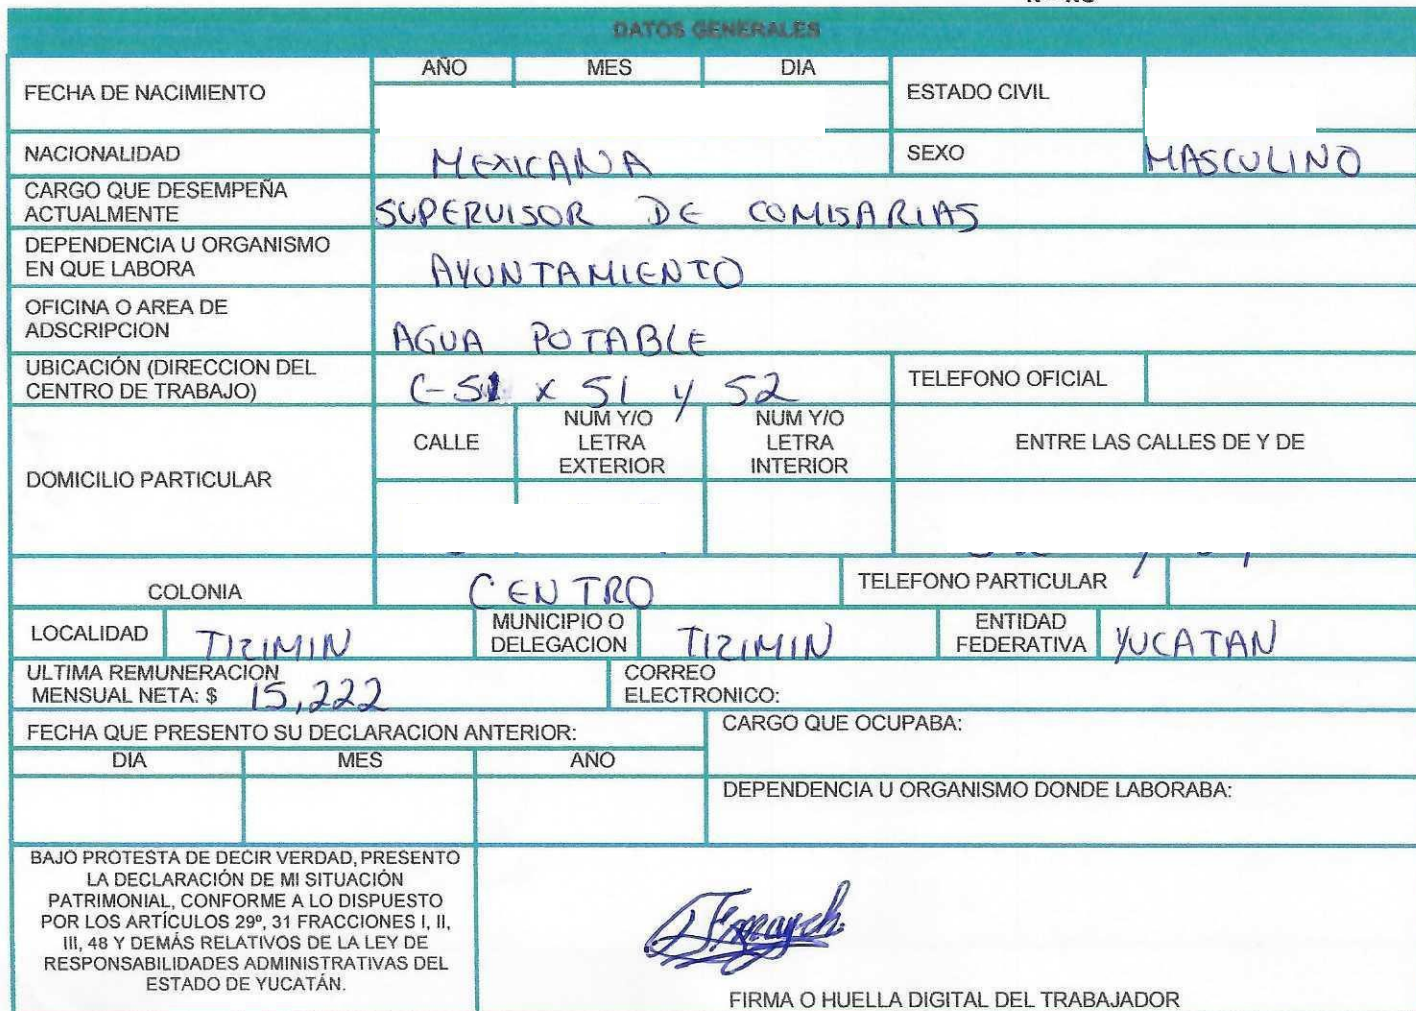 DATOS GENERALES
FECHA DE NACIMIENTO AÑO MES DIA ESTADO CIVIL
NACIONALIDAD MEXICANA SEXO MASCULINO
CARGO QUE DESEMPEÑA
ACTUALMENTE SUPERVISOR DE COMISARIAS
DEPENDENCIA U ORGANISMO
EN QUE LABORA AYUNTAMIENTO
OFICINA O AREA DE
ADSCRIPCION AGUA POTABLE
UBICACIÓN (DIRECCION DEL
CENTRO DE TRABAJO) C-51 x 51 y 52 TELEFONO OFICIAL
DOMICILIO PARTICULAR
CALLE
NUM Y/O
LETRA
EXTERIOR
NUM Y/O
LETRA
INTERIOR
ENTRE LAS CALLES DE Y DE
COLONIA CENTRO TELEFONO PARTICULAR
LOCALIDAD TIZIMIN
MUNICIPIO O
DELEGACION TIZIMIN
ENTIDAD
FEDERATIVA YUCATAN
ULTIMA REMUNERACION
MENSUAL NETA: $ 15,222
CORREO
ELECTRONICO:
FECHA QUE PRESENTO SU DECLARACION ANTERIOR:
DIA MES AÑO
CARGO QUE OCUPABA:
DEPENDENCIA U ORGANISMO DONDE LABORABA:
BAJO PROTESTA DE DECIR VERDAD, PRESENTO
LA DECLARACIÓN DE MI SITUACIÓN
PATRIMONIAL, CONFORME A LO DISPUESTO
POR LOS ARTÍCULOS 29º, 31 FRACCIONES I, II,
III, 48 Y DEMÁS RELATIVOS DE LA LEY DE
RESPONSABILIDADES ADMINISTRATIVAS DEL
ESTADO DE YUCATÁN.
FIRMA O HUELLA DIGITAL DEL TRABAJADOR